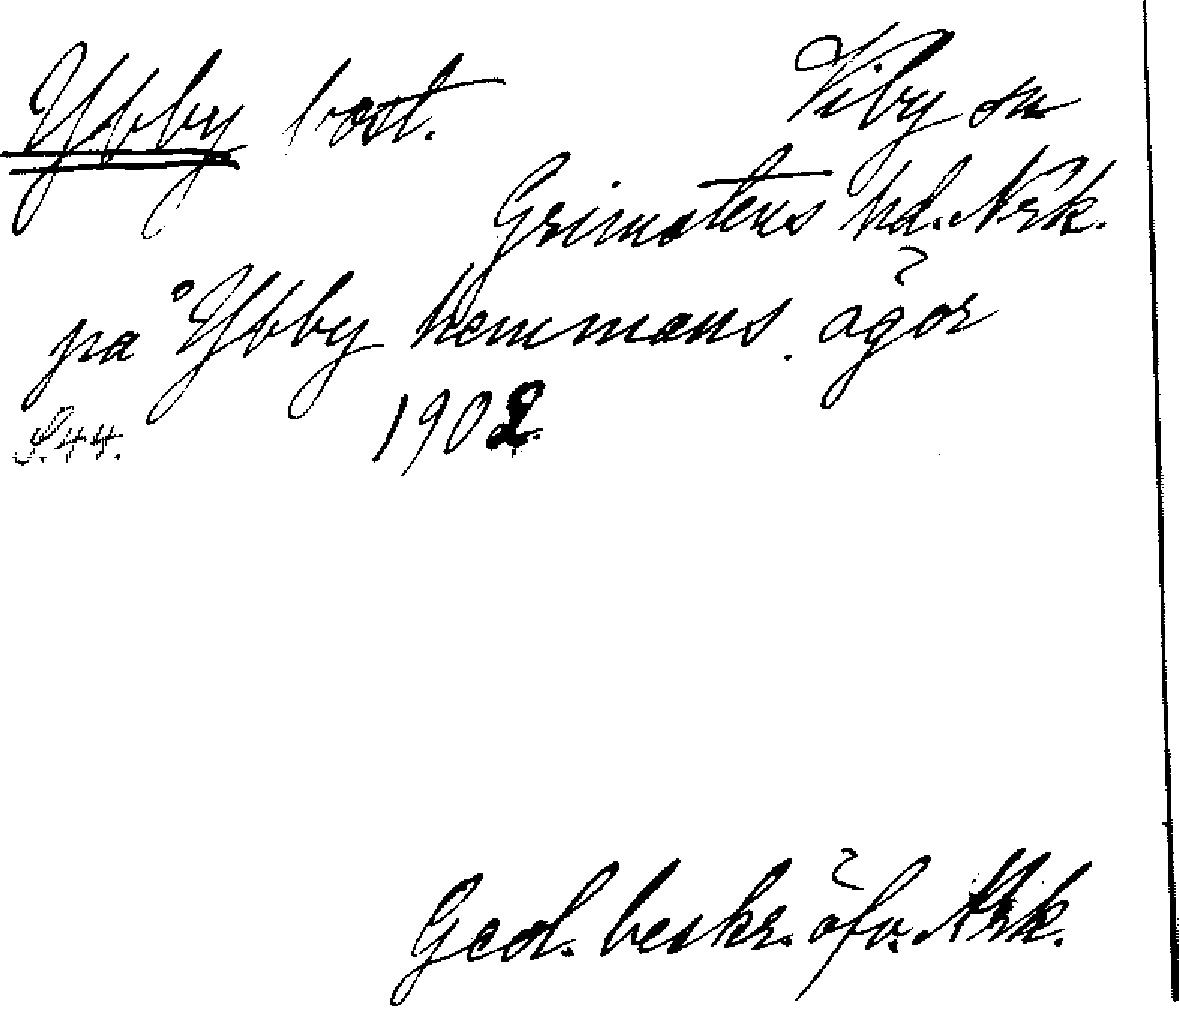 Ybby bost. Viby sn
Grimstens hd. Nrk.
på Ybby hemmans ägor
S. 44. 1902.
Geol. beskr. öfv. Nrk.